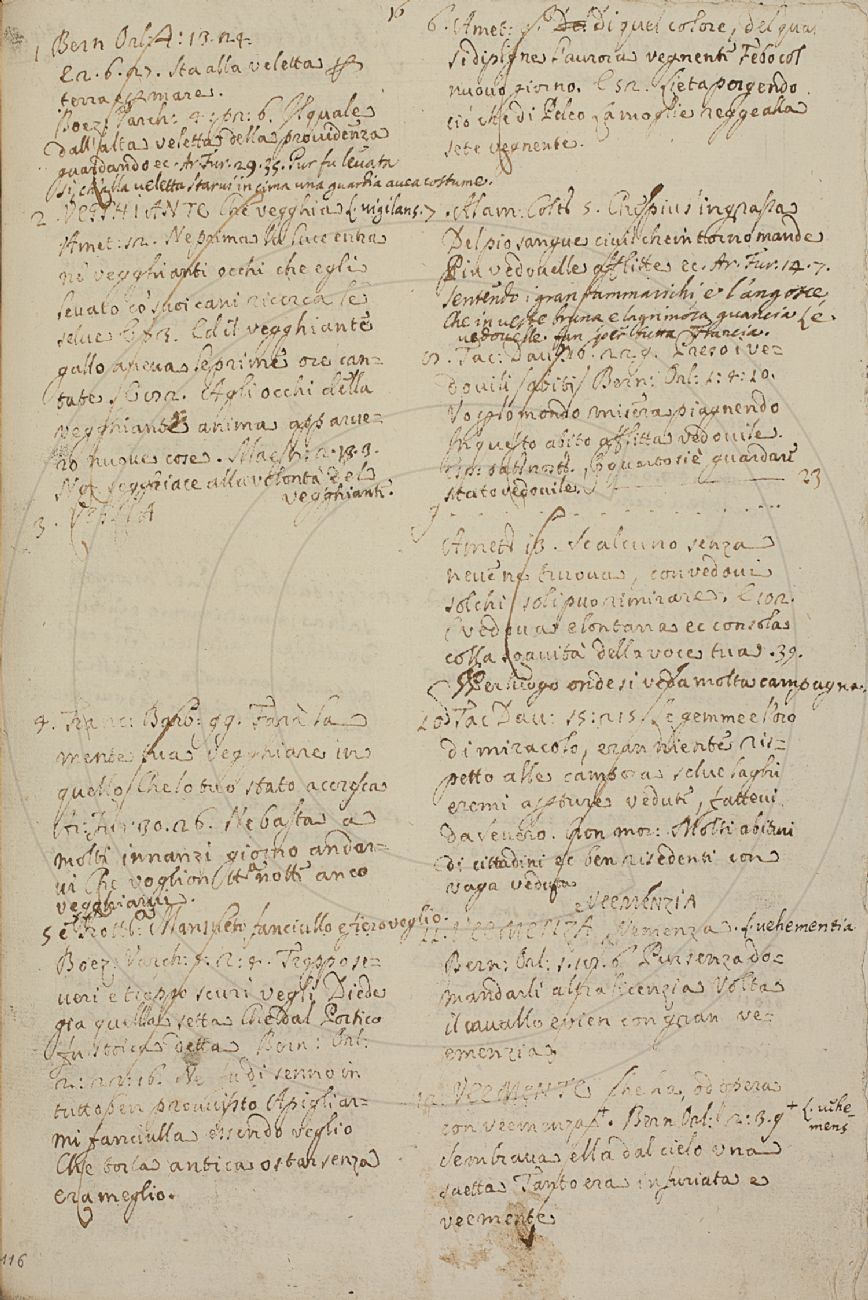 16
1 Bern Orl. 4: 13. 24.
E 2. 6. 27. Sta alla veletta
terra mare.
Boez: Varch: 4: 6. Il quale
dall'alta veletta della providenza
guardando ec. Ar. Fur. 29. 35. Pur fu levata
sì, ch'alla veletta starui in cima una guardia avea costume.
2. VEGHIANTE Che vegghia L. vigilans.
Amet: 12. Ne prima la luce entra
ne vegghianti occhi che egli
levato co' suoi cani ricerca le
selue E 73. Ed il vegghiante
gallo aveva le prime ore can=
tate. Agli occhi della
vegghiante anima apparue=
ro nuove cose. Maesh: 2. 13. 3.
Nol seggiace alla volontà del
vegghianti.
3.
4. Franc: Barb: 99. Farà la
mente tua vegghiare in
quello Che lo tuo stato accresca
Ar. Fur. 30. 26. Ne basta a
molti innanzi giorno andar=
ui Che voglion tta notte anco
vegghiarui.
5 e Mansueto fanciullo e fiero veglio.
Boez: Varch: Troppo se=
ueri e troppo scuri vegli Diede
gia quella setta Che dal Portico
fu stoica detta Bern: Orl:
2: 22: 16. Ne fu di senno in
tutto ben provvisto A pigliar=
mi fanciulla essendo veglio
Che torla antica o star senza
era meglio.
116
6. Amet: 5. Di quel colore, del qual
si dipigne l'aurora vegnente Febo col
nuovo giorno. E 52. Lieta porgendo
ciò che di Peleo La moglie regge alla
sete vegnente.
7. Alam: Colt 5. Che più s'ingrassa
Del pio sangue ciuil che intorno mande
Più vedouelle afflitte ec. Ar. Fur. 14. 7.
sentendo i gran rammarichi e l'angosce
Che in veste bruna e lagrimosa guancia Le
vedovelle fan per tutta Francia.
8. Tac: Dau: 16. 229. Preso i ve=
douili abiti Bern: Orl: 1: 4: 10.
Vo pel mondo misera piagnendo
In questo abito afflitta vedouile.
quarto si è guardare
stato vedouile. 23
9
Amet 13. Se alcuno senza
neve ne truova, con vedovi
solchi soli può rimirare. E 102.
E vedova e lontana ec consola
colla soavità della voce tua. 39.
Per luogo onde si veda molta campagna.
10 Tac Dau: 15: 215 Le gemme e l'oro
di miracolo, eran niente ris=
petto alle campora selue laghi
eremi apriture vedute, fattevi
da Severo. Gion mor: Molti abituri
di cittadini ec ben risedenti con
vaga veduta
VEEMENZIA
11. VEEMENZA Vemenza. L. uehementia
Bern: Orl: 1. 6 Pur senza do=
mandarli altra licenzia Volta
il cavallo e vien con gran ve=
emenzia
12. VEEMENTE Che ha, od opera
con veemenza+. Bern Orl: 2: 3. 9 + L: uehe=
mens
Sembraua ella dal cielo una
saetta Tanto era infuriata e
veemente